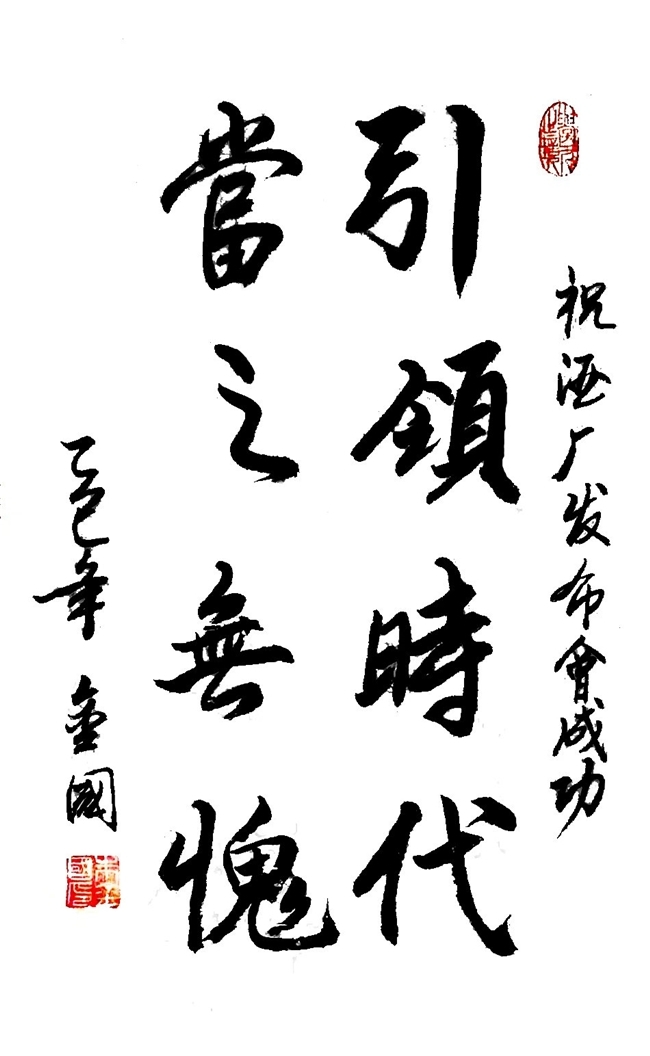 祝酒厂发布會成功
引領時代
當之無愧
乙巳年 金國